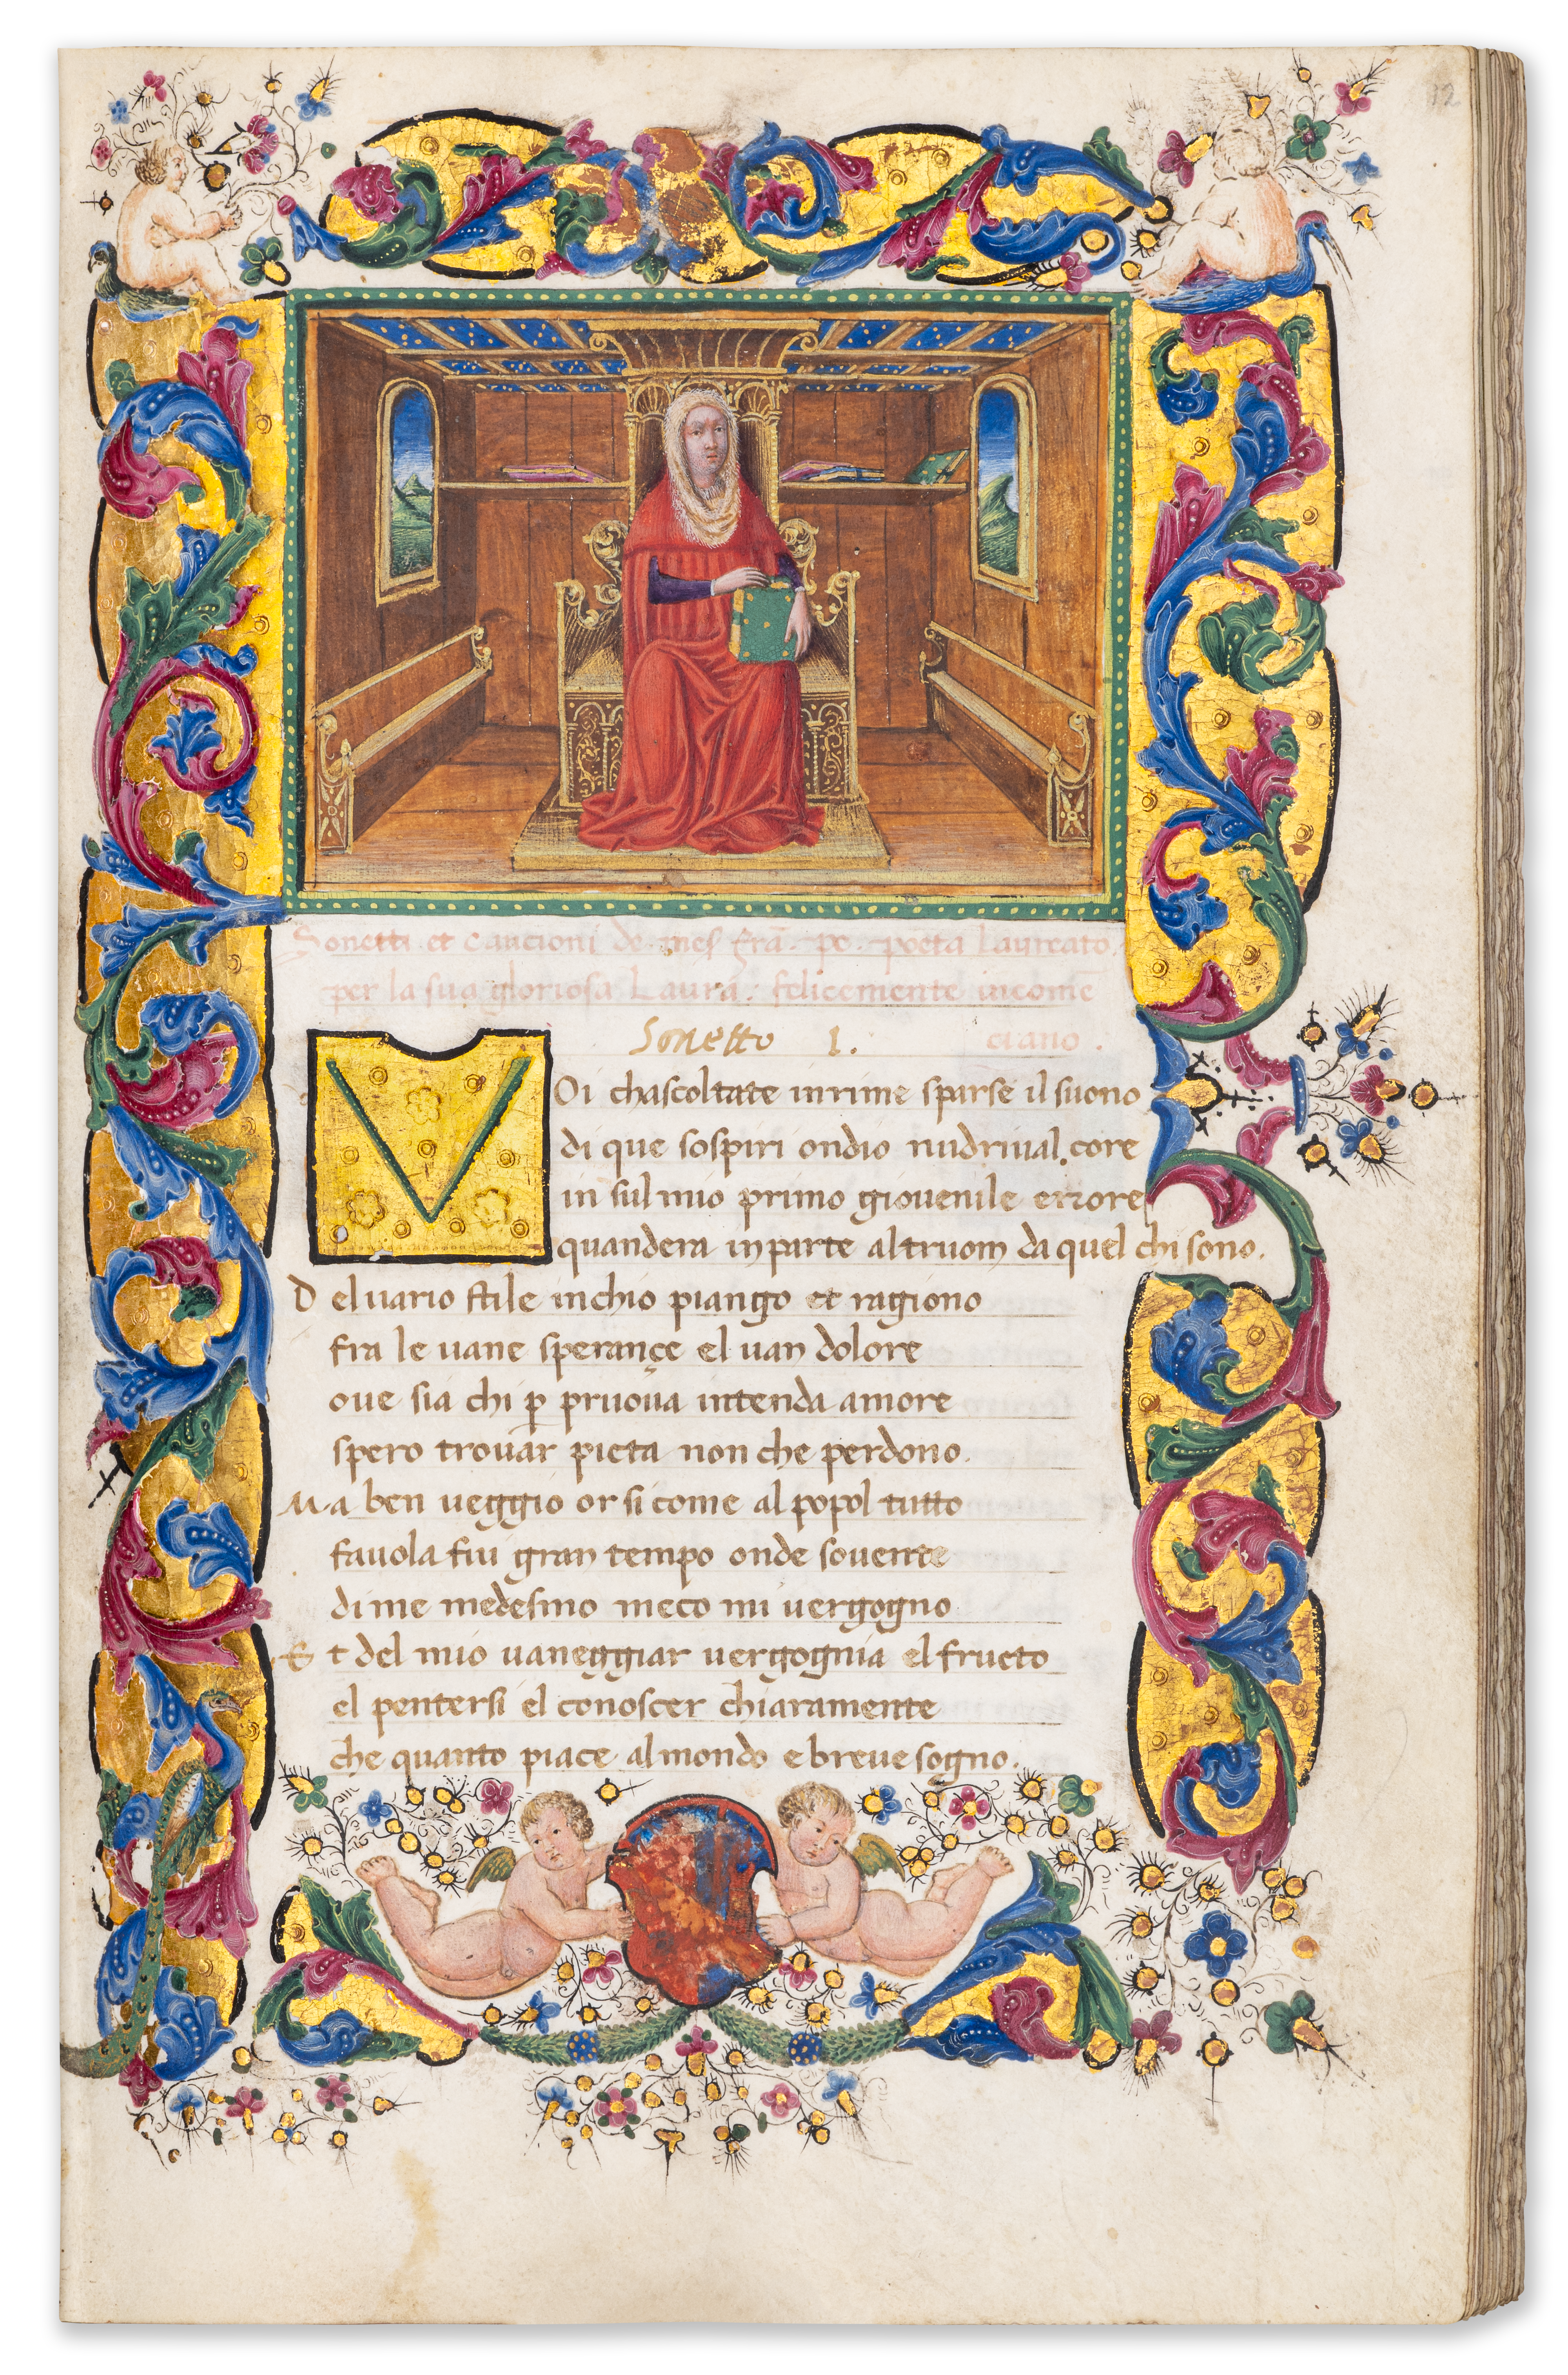 12
Sonetti et cancioni de mes frā. pe. poeta Laureato
per la sua gloriosa Laura: felicemente incomē
ciano.
Sonetto 1.
VOi chascoltate inrime sparse il suono
di que sospiri ondio nudriual.core
in sul mio primo giouenile errore
quandera inparte altruom da quel chi sono.
D eluario stile inchio piango et ragiono
fra le uane sperançe el uan dolore
oue sia chi ꝑ pruoua intenda amore
spero trouar pieta non che perdono.
M a ben ueggio or si come al popol tutto
fauola fui gran tempo onde souente
di me medesmo meco mi uergogno
E t del mio uaneggiar uergognia el fructo
el pentersi el conoscer chiaramente
che quanto piace al mondo e breue sogno.